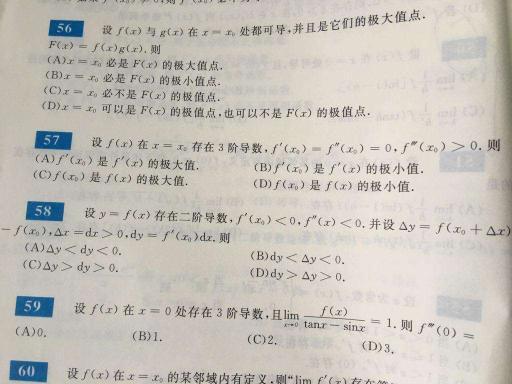 56 设 f(x) 与 g(x) 在 x = x₀ 处都可导,并且是它们的极大值点.
F(x) = f(x)g(x). 则
(A)x = x₀ 必是 F(x) 的极大值点.
(B)x = x₀ 必是 F(x) 的极小值点.
(C)x = x₀ 必不是 F(x) 的极值点.
(D)x = x₀ 可以是 F(x) 的极值点,也可以不是 F(x) 的极值点.
57 设 f(x) 在 x = x₀ 存在 3 阶导数, f′(x₀) = f″(x₀) = 0, f‴(x₀) > 0. 则
(A)f′(x₀) 是 f′(x) 的极大值. (B)f′(x₀) 是 f′(x) 的极小值.
(C)f(x₀) 是 f(x) 的极大值. (D)f(x₀) 是 f(x) 的极小值.
58 设 y = f(x) 存在二阶导数, f′(x₀) < 0, f″(x) < 0. 并设 Δy = f(x₀ + Δx)
− f(x₀), Δx = dx > 0, dy = f′(x₀)dx. 则
(A)Δy < dy < 0. (B)dy < Δy < 0.
(C)Δy > dy > 0. (D)dy > Δy > 0.
59 设 f(x) 在 x = 0 处存在 3 阶导数,且 lim x→0 f(x)/(tanx − sinx) = 1. 则 f‴(0) =
(A)0. (B)1. (C)2. (D)3.
60 设 f(x) 在 x = x₀ 的某邻域内有定义,则"lim f′(x)